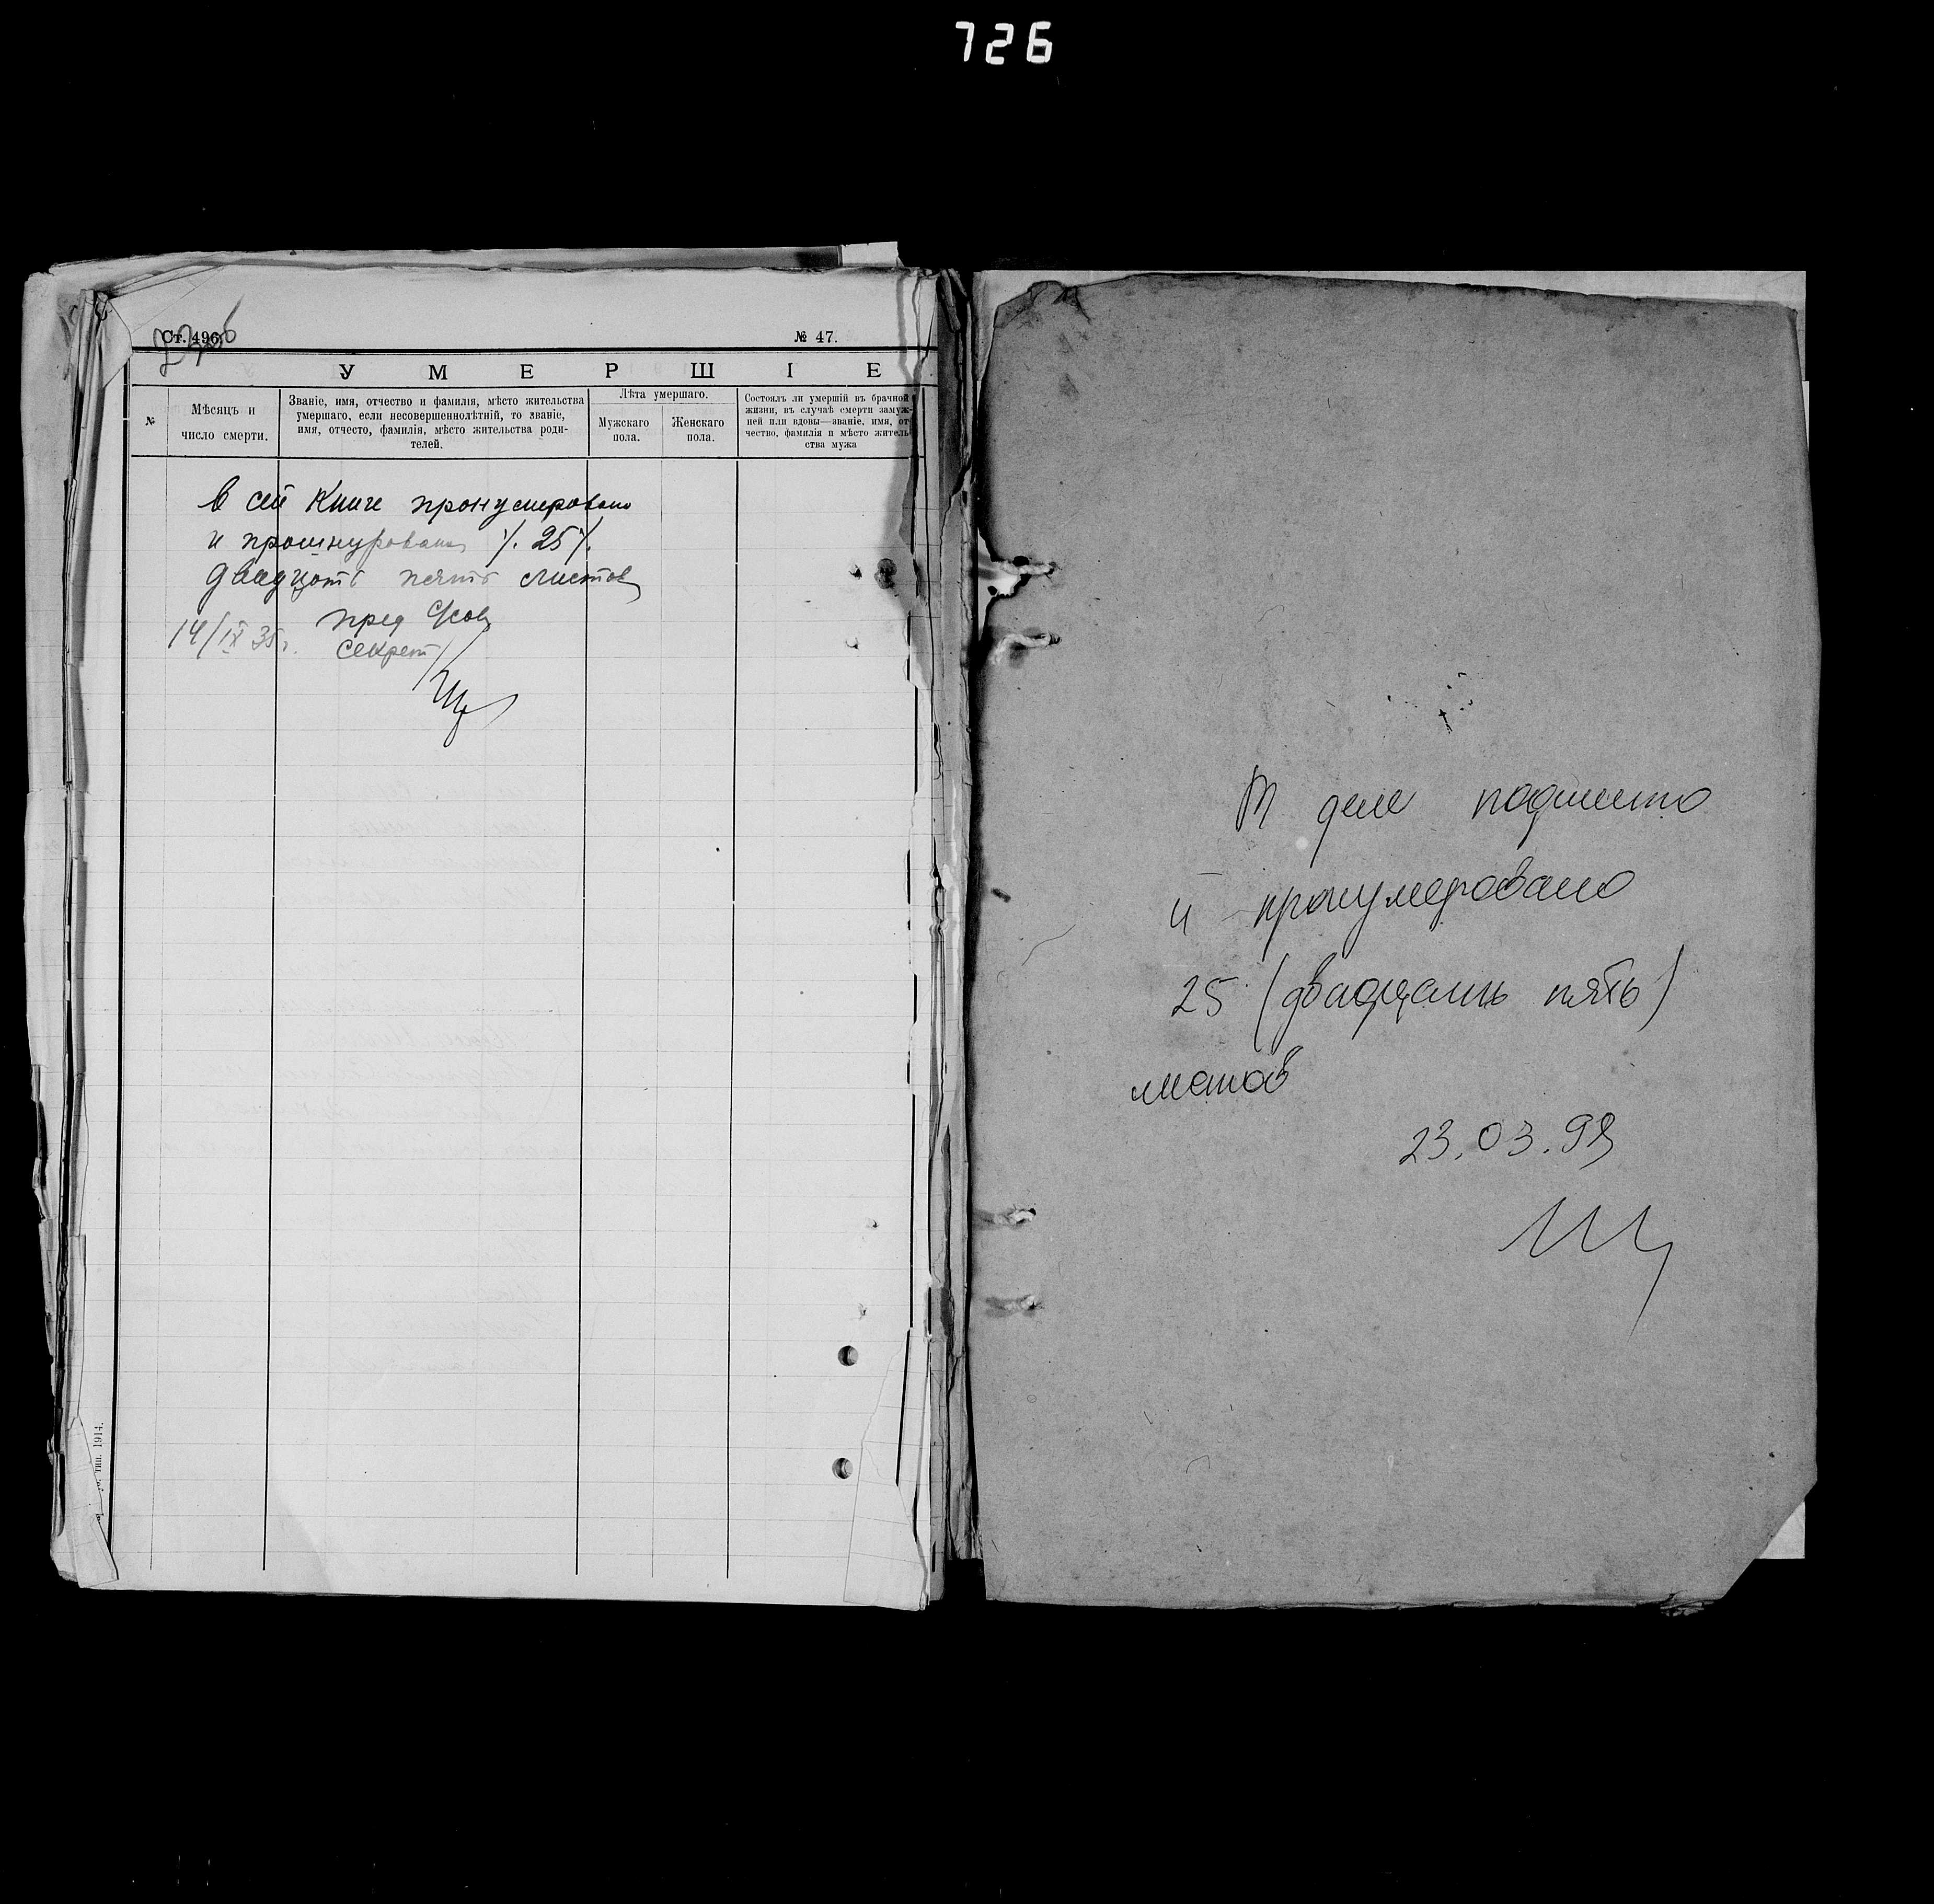 726
Ст. 496.
№ 47.
УМЕРШІЕ
№
Мѣсяцъ и
число смерти.
Званіе, имя, отчество и фамилія, мѣсто жительства
умершаго, если несовершеннолѣтній, то званіе,
имя, отчесто, фамилія, мѣсто жительства роди-
телей.
Лѣта умершаго.
Мужскаго
пола.
Женскаго
пола.
Состоялъ ли умершій въ брачной
жизни, въ случаѣ смерти замуж-
ней или вдовы—званіе, имя, от
чество, фамилія и мѣсто житель-
ства мужа
в сей книге пронумеровано
и прошнуровано /. 25 /.
двадцать пять листов
пред С/сов
14/IX 35 г. секрет
тип. 1914.
В деле подшито
и пронумеровано
25 (двадцать пять)
листов
23.03.98